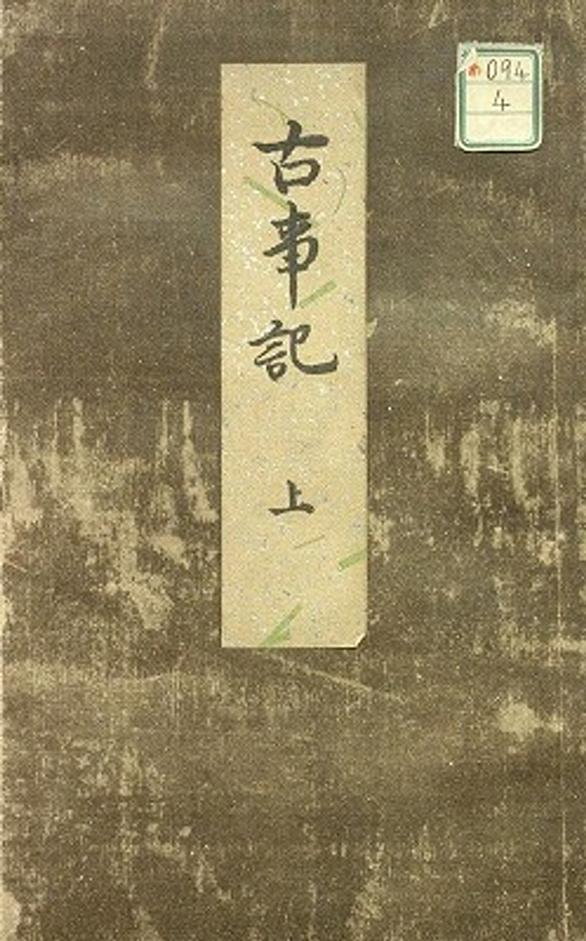 古事記 上
094
4